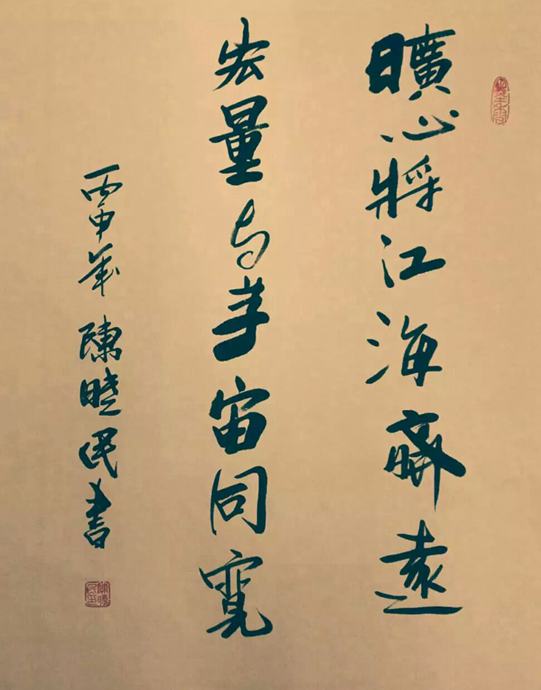 曠心將江海齊遠
宏量与宇宙同寬
丙申年 陳曉民書